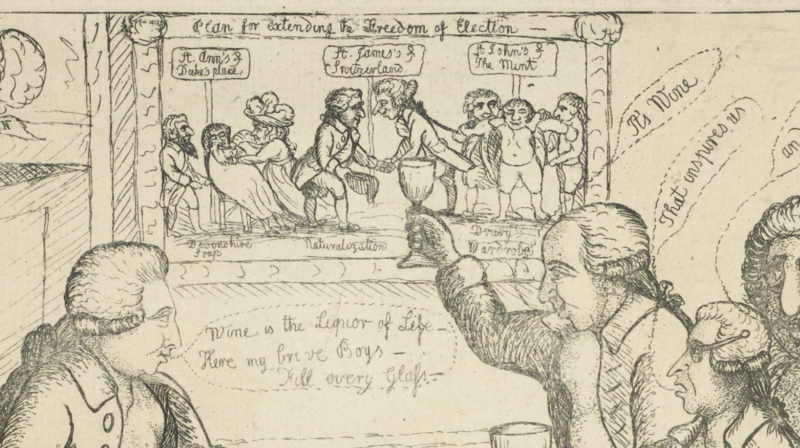 Plan for extending the Freedom of Election —
St. Ann's &
Duke's place
St. James's &
Switzerland
St. John's &
The Mint
Devonshire
Soap
Naturalization
Drury
Wardrobe
Its Wine
That inspires us
an
Wine is the Liquor of Life —
Here my breve Boys —
Fill every Glass —